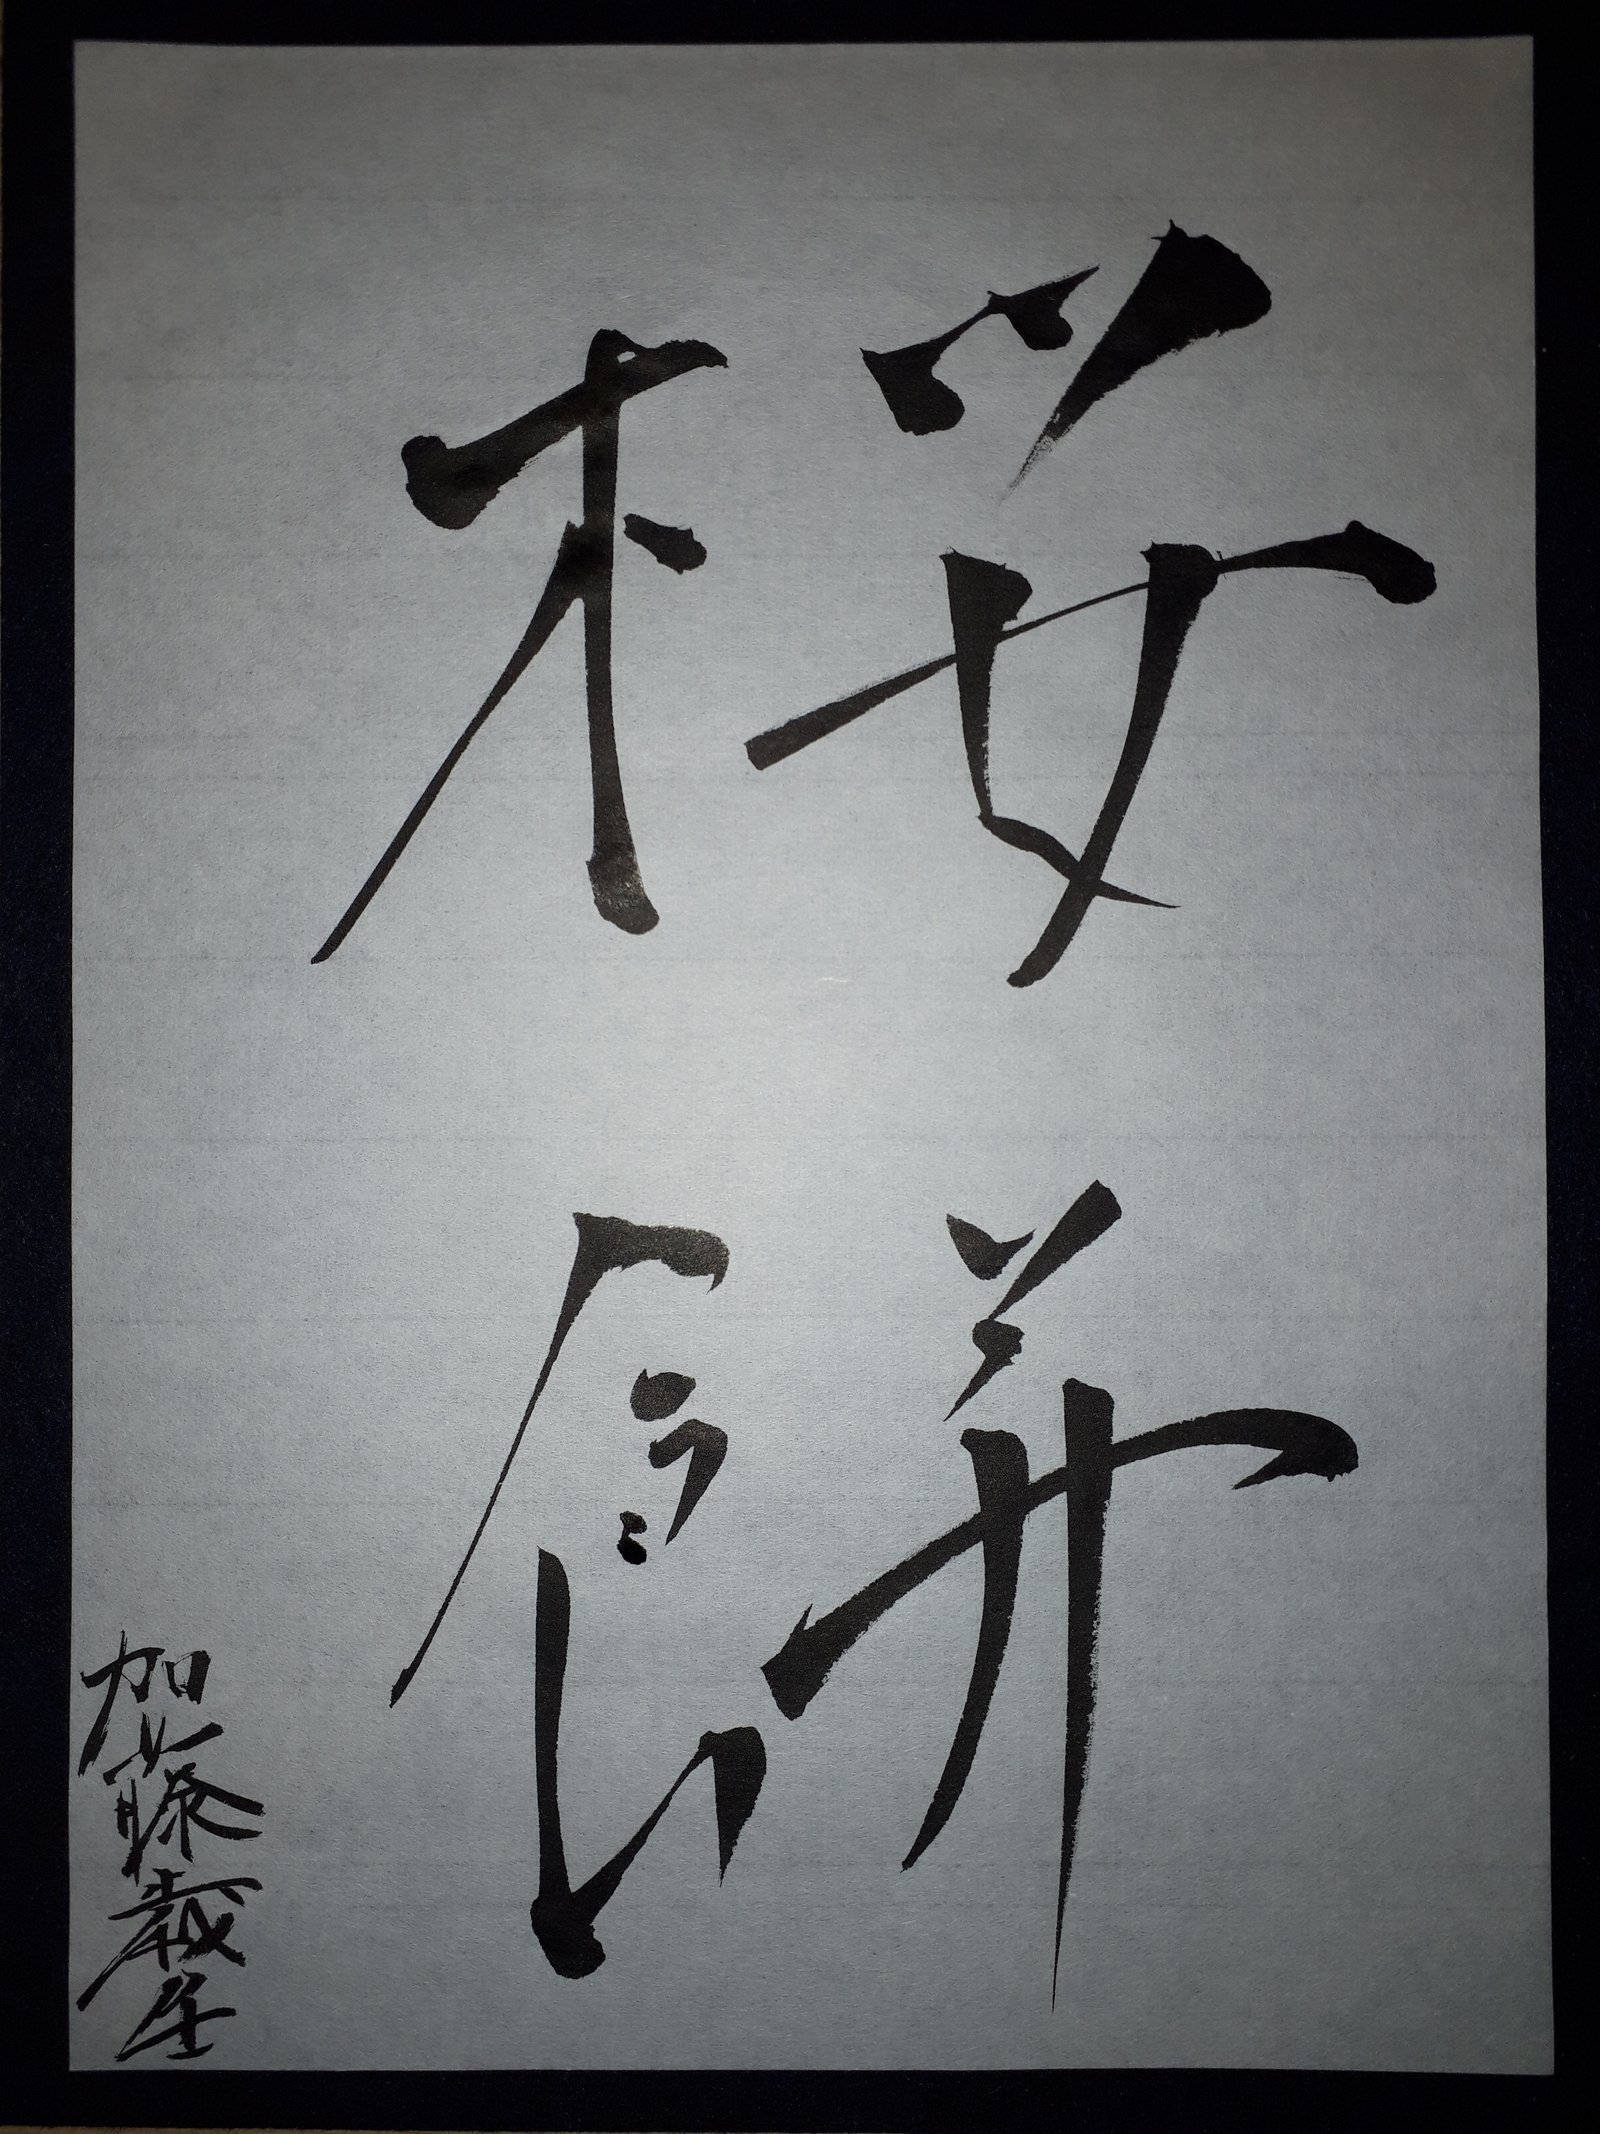 桜餅
加藤歳生